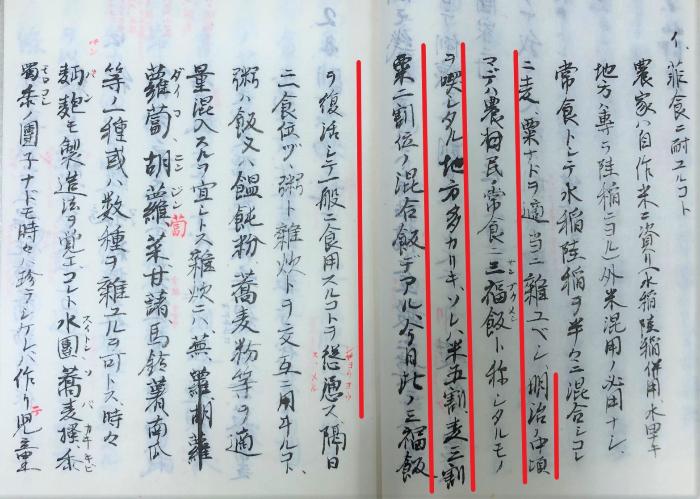 イ、菲食ニ耐ユルコト
農家ハ自作米ニ資リ(水稲陸稲併用、水田ナキ
地方ハ専ラ陸稲ニヨル)外米混用ノ必用ナシ、
常食トシテ水稲陸稲ヲ半々ニ混合シコレ
ニ麦、粟ナドヲ適当ニ雑ユベシ、明治ノ中頃
マデハ農村民ノ常食ニ三福飯ト称シタルモノ
サンプクメシ
ヲ喫シタル地方多カリキ、ソレハ米五割、麦三割
粟二割位ノ混合飯デアル、今日此ノ三福飯
ヲ復活シテ一般ニ食用スルコトヲ慫慂ス隔日
シヨウヨウ
ス、メル
二食位ヅヽ粥ト雑炊トヲ交互ニ用ヰルコト、
粥ハ飯又ハ饂飩粉、蕎麦粉等ヲ適
量混入スルヲ宜シトス雑炊ニハ蕪蘿胡蘿
蘿蔔胡蘿、菜甘諸馬鈴薯南瓜
ダイコ
ニンジン
蔔
等ノ一種或ハ数種ヲ雑ユルヲ可トス、時々
麺麭モ製造法ヲ覚エコレト水團蕎麦掻、黍
パン
スイトン
ソバ
カキ
キビ
蜀黍ノ團子ナドモ時々ハ珍ラシケレバ作リテ児童
モロコシ